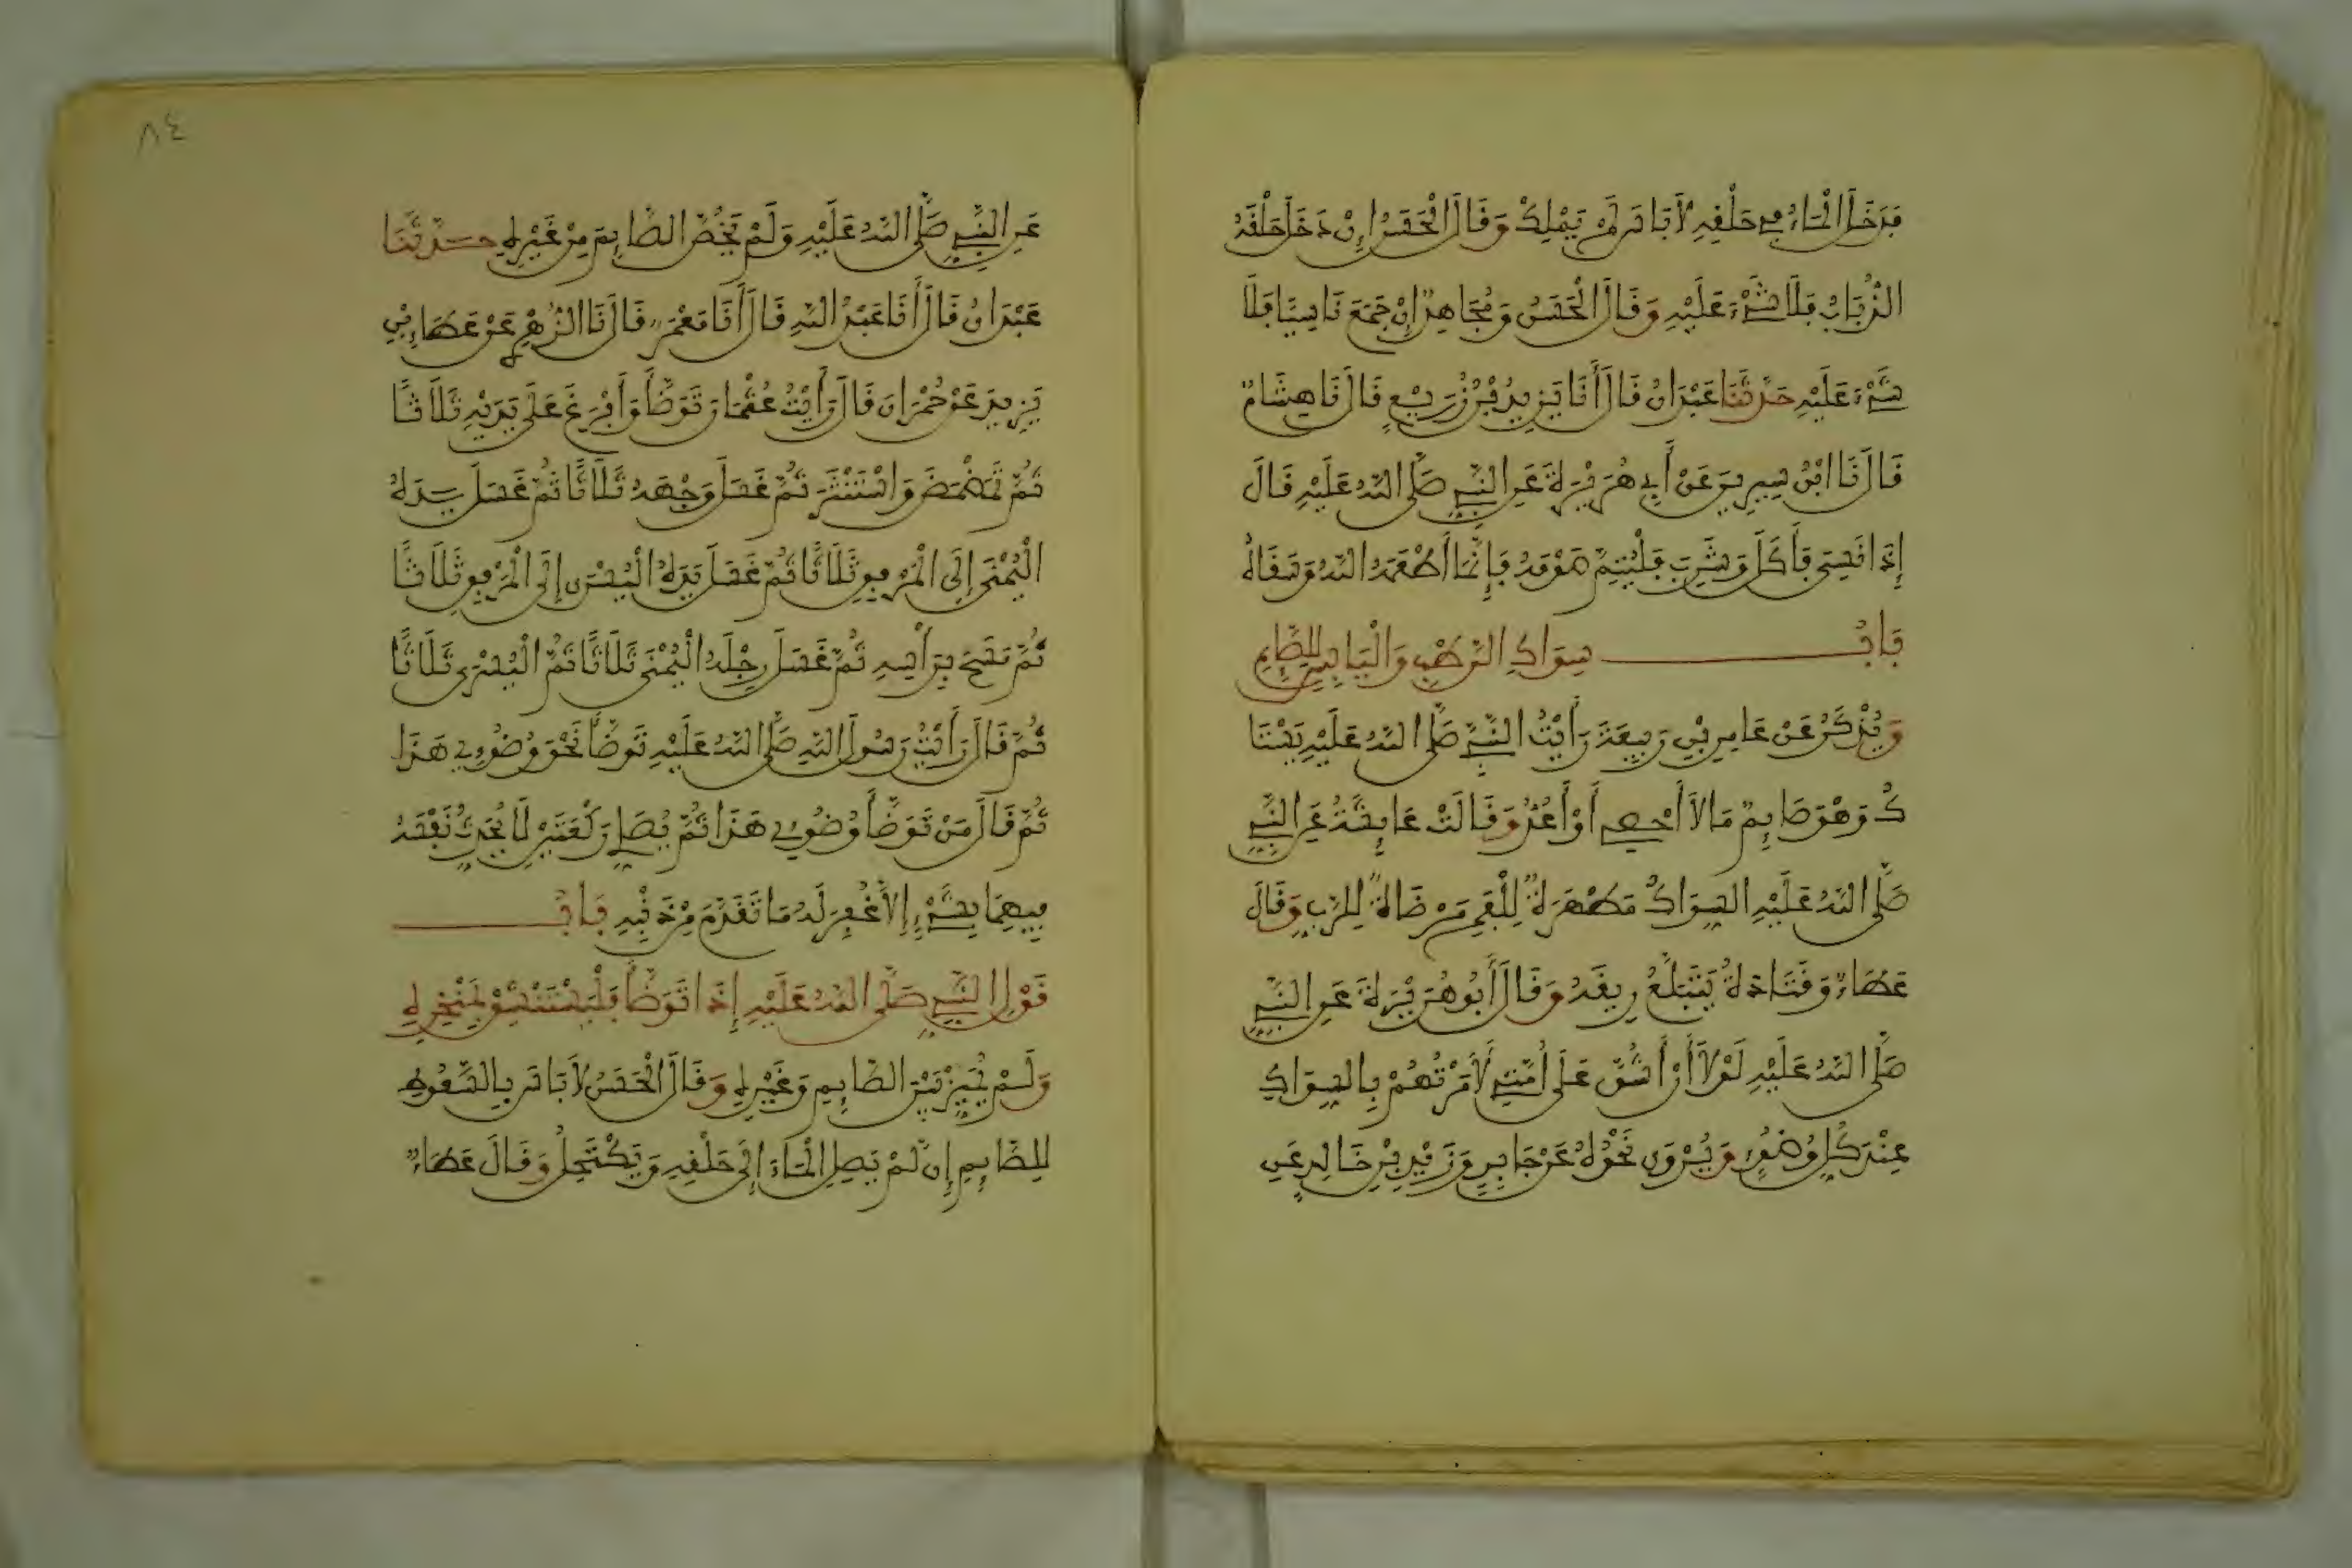 فَدَخَلَ الْمَاءُ فِي حَلْقِهِ لَا بَأْسَ لَمْ يَمْلِكْ وَقَالَ الْحَسَنُ إِنْ دَخَلَ حَلْقَهُ
الذُّبَابُ فَلَا شَيْءَ عَلَيْهِ وَقَالَ الْحَسَنُ وَمُجَاهِدٌ إِنْ جَامَعَ نَاسِيًا فَلَا
شَيْءَ عَلَيْهِ حَدَّثَنَا عَبْدَانُ قَالَ أَنَا يَزِيدُ بْنُ زُرَيْعٍ قَالَ نَا هِشَامٌ
قَالَ نَا ابْنُ سِيرِينَ عَنْ أَبِي هُرَيْرَةَ عَنِ النَّبِيِّ صَلَّى اللَّهُ عَلَيْهِ قَالَ
إِذَا نَسِيَ فَأَكَلَ وَشَرِبَ فَلْيُتِمَّ صَوْمَهُ فَإِنَّمَا أَطْعَمَهُ اللَّهُ وَسَقَاهُ
بَابُ سِوَاكِ الرَّطْبِ وَالْيَابِسِ لِلصَّائِمِ
وَيُذْكَرُ عَنْ عَامِرِ بْنِ رَبِيعَةَ رَأَيْتُ النَّبِيَّ صَلَّى اللَّهُ عَلَيْهِ يَسْتَا
كُ وَهْوَ صَائِمٌ مَا لَا أُحْصِي أَوْ أَعُدُّ وَقَالَتْ عَائِشَةُ عَنِ النَّبِيِّ
صَلَّى اللَّهُ عَلَيْهِ السِّوَاكُ مَطْهَرَةٌ لِلْفَمِ مَرْضَاةٌ لِلرَّبِّ وَقَالَ
عَطَاءٌ وَقَتَادَةُ يَبْتَلِعُ رِيقَهُ وَقَالَ أَبُو هُرَيْرَةَ عَنِ النَّبِيِّ
صَلَّى اللَّهُ عَلَيْهِ لَوْلَا أَنْ أَشُقَّ عَلَى أُمَّتِي لَأَمَرْتُهُمْ بِالسِّوَاكِ
عِنْدَ كُلِّ وُضُوءٍ وَيُرْوَى نَحْوُهُ عَنْ جَابِرٍ وَزَيْدِ بْنِ خَالِدٍ عَنِ
٨٤
عَنِ النَّبِيِّ صَلَّى اللَّهُ عَلَيْهِ وَلَمْ يَخُصَّ الصَّائِمَ مِنْ غَيْرِهِ حَدَّثَنَا
عَبْدَانُ قَالَ أَنَا عَبْدُ اللَّهِ قَالَ أَنَا مَعْمَرٌ قَالَ نَا الزُّهْرِي عَنْ عَطَاءِ بْنِ
يَزِيدَ عَنْ حُمْرَانَ قَالَ رَأَيْتُ عُثْمَانَ تَوَضَّأَ وَأَفْرَغَ عَلَى يَدَيْهِ ثَلَاثًا
ثُمَّ تَمَضْمَضَ وَاسْتَنْثَرَ ثُمَّ غَسَلَ وَجْهَهُ ثَلَاثًا ثُمَّ غَسَلَ يَدَهُ
الْيُمْنَى إِلَى الْمَرْفِقِ ثَلَاثًا ثُمَّ غَسَلَ يَدَهُ الْيُسْرَى إِلَى الْمَرْفِقِ ثَلَاثًا
ثُمَّ مَسَحَ بِرَأْسِهِ ثُمَّ غَسَلَ رِجْلَهُ الْيُمْنَى ثَلَاثًا ثُمَّ الْيُسْرَى ثَلَاثًا
ثُمَّ قَالَ رَأَيْتُ رَسُولَ اللَّهِ صَلَّى اللَّهُ عَلَيْهِ تَوَضَّأَ نَحْوَ وُضُوئِي هَذَا
ثُمَّ قَالَ مَنْ تَوَضَّأَ وُضُوئِي هَذَا ثُمَّ يُصَلِّي رَكْعَتَيْنِ لَا يُحَدِّثُ نَفْسَهُ
فِيهِمَا بِشَيْءٍ إِلَّا غُفِرَ لَهُ مَا تَقَدَّمَ مِنْ ذَنْبِهِ بَابُ
قَوْلِ النَّبِيِّ صَلَّى اللَّهُ عَلَيْهِ إِذَا تَوَضَّأَ فَلْيَسْتَنْشِقْ بِمَنْخِرِهِ
وَلَمْ يُمَيِّزْ بَيْنَ الصَّائِمِ وَغَيْرِهِ وَقَالَ الْحَسَنُ لَا بَأْسَ بِالسَّعُوطِ
لِلصَّائِمِ إِنْ لَمْ يَصِلِ الْمَاءَ إِلَى حَلْقِهِ وَيَكْتَحِلُ وَقَالَ عَطَاءٌ